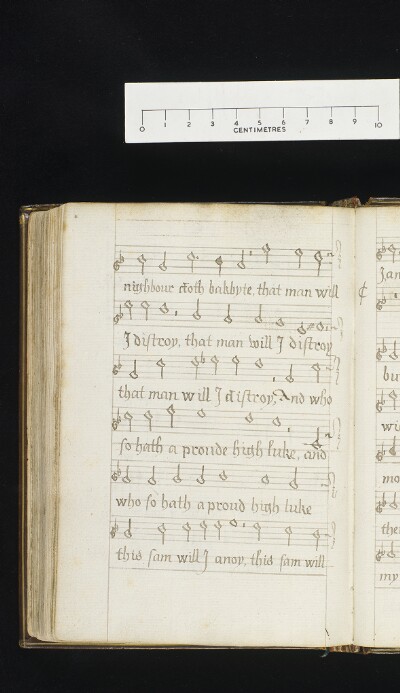 0 1 2 3 4 5 6 7 8 9 10
CENTIMETRES
nighbour doth bakbyte, that man will
I distroy, that man will I distroy
that man will I distroy, And who
so hath a proude high luke, and
who so hath a proud high luke
this sam will I anoy, this sam will